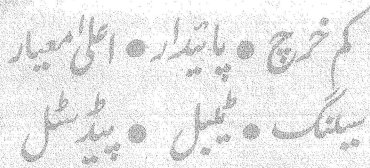 کم خرچ ● پائیدار ● اعلیٰ معیار
سیلنگ ● ٹیبل ● پیڈسٹل